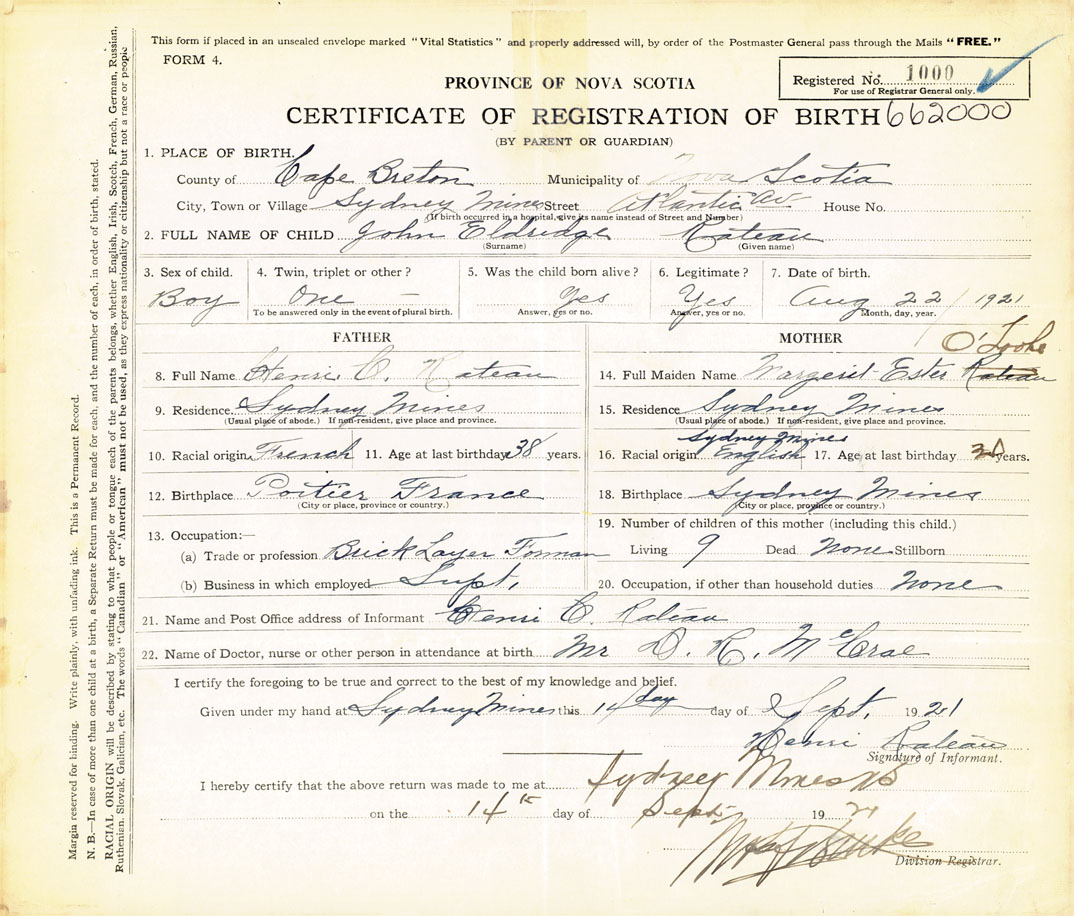 This form if placed in an unsealed envelope marked "Vital Statistics" and properly addressed will, by order of the Postmaster General pass through the Mails "FREE."
FORM 4.
Registered No. 1000
For use of Registrar General only.
PROVINCE OF NOVA SCOTIA
CERTIFICATE OF REGISTRATION OF BIRTH 662000
(BY PARENT OR GUARDIAN)
1. PLACE OF BIRTH.
County of Cape Breton Municipality of Nova Scotia
City, Town or Village Sydney Mines Street Atlantic Av House No.
(If birth occurred in a hospital, give its name instead of Street and Number)
2. FULL NAME OF CHILD John Eldridge Rateau
(Surname) (Given name)
3. Sex of child. 4. Twin, triplet or other? 5. Was the child born alive? 6. Legitimate? 7. Date of birth.
Boy One — Yes Yes Aug 22 / 1921
To be answered only in the event of plural birth. Answer, yes or no. Answer, yes or no. Month, day, year.
FATHER
8. Full Name Henri C. Rateau
9. Residence. Sydney Mines
(Usual place of abode.) If non-resident, give place and province.
10. Racial origin French 11. Age at last birthday 38 years.
12. Birthplace Poitier France
(City or place, province or country.)
13. Occupation:—
(a) Trade or profession Brick Layer Forman
(b) Business in which employed Supt.
MOTHER
O'Tooke
14. Full Maiden Name Margerit Ester Rateau
15. Residence Sydney Mines
(Usual place of abode.) If non-resident, give place and province.
Sydney Mines
16. Racial origin English 17. Age at last birthday years.
18. Birthplace Sydney Mines
(City or place, province or country.)
19. Number of children of this mother (including this child.)
Living 9 Dead None Stillborn
20. Occupation, if other than household duties None
21. Name and Post Office address of Informant Henri C. Rateau
22. Name of Doctor, nurse or other person in attendance at birth Mr D. R. McCrae
I certify the foregoing to be true and correct to the best of my knowledge and belief.
Given under my hand at Sydney Mines this 14 day day of Sept. 1921
Henri Rateau
Signature of Informant.
I hereby certify that the above return was made to me at Sydney Mines NS
on the 14th day of Sept 1921
Division Registrar.
Margin reserved for binding. Write plainly, with unfading ink. This is a Permanent Record.
N. B.—In case of more than one child at a birth, a Separate Return must be made for each, and the number of each, in order of birth, stated.
RACIAL ORIGIN will be described by stating to what people or tongue each of the parents belongs, whether English, Irish, Scotch, French, German, Russian,
Ruthenian, Slovak, Galician, etc. The words "Canadian" or "American" must not be used, as they express nationality or citizenship but not a race or people